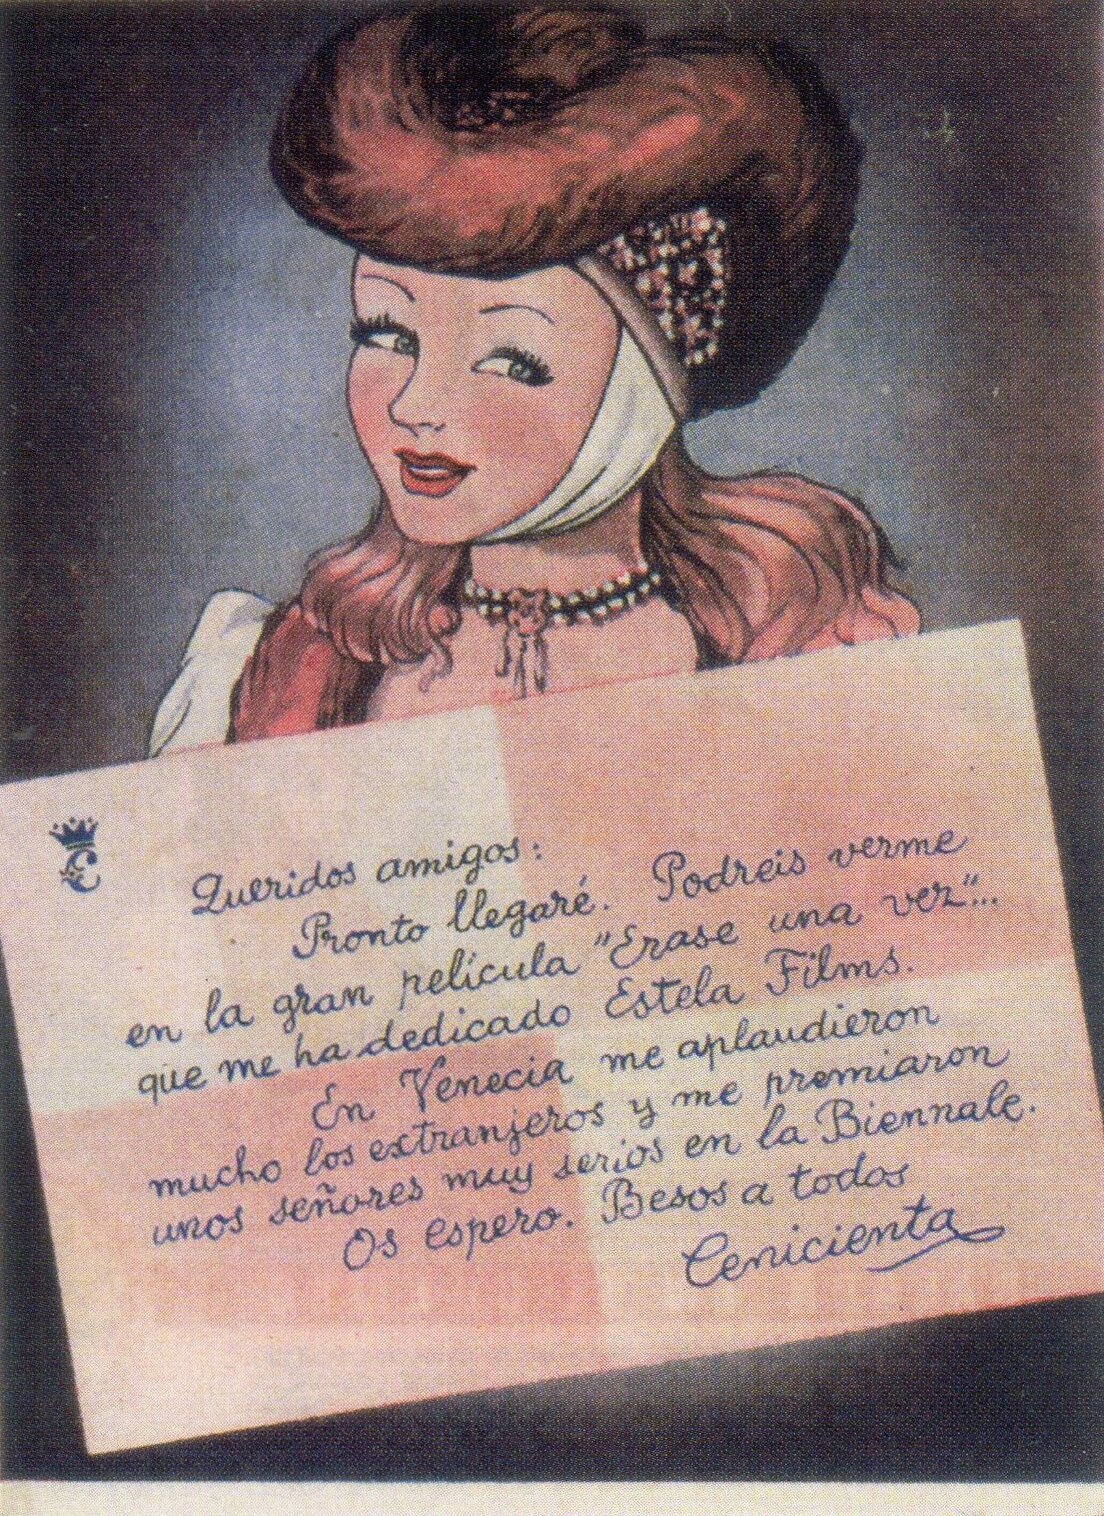 Queridos amigos:
Pronto llegaré. Podreis verme
en la gran película "Erase una vez"...
que me ha dedicado Estela Films.
En Venecia me aplaudieron
mucho los extranjeros y me premiaron
unos señores muy serios en la Biennale.
Os espero. Besos a todos
Cenicienta